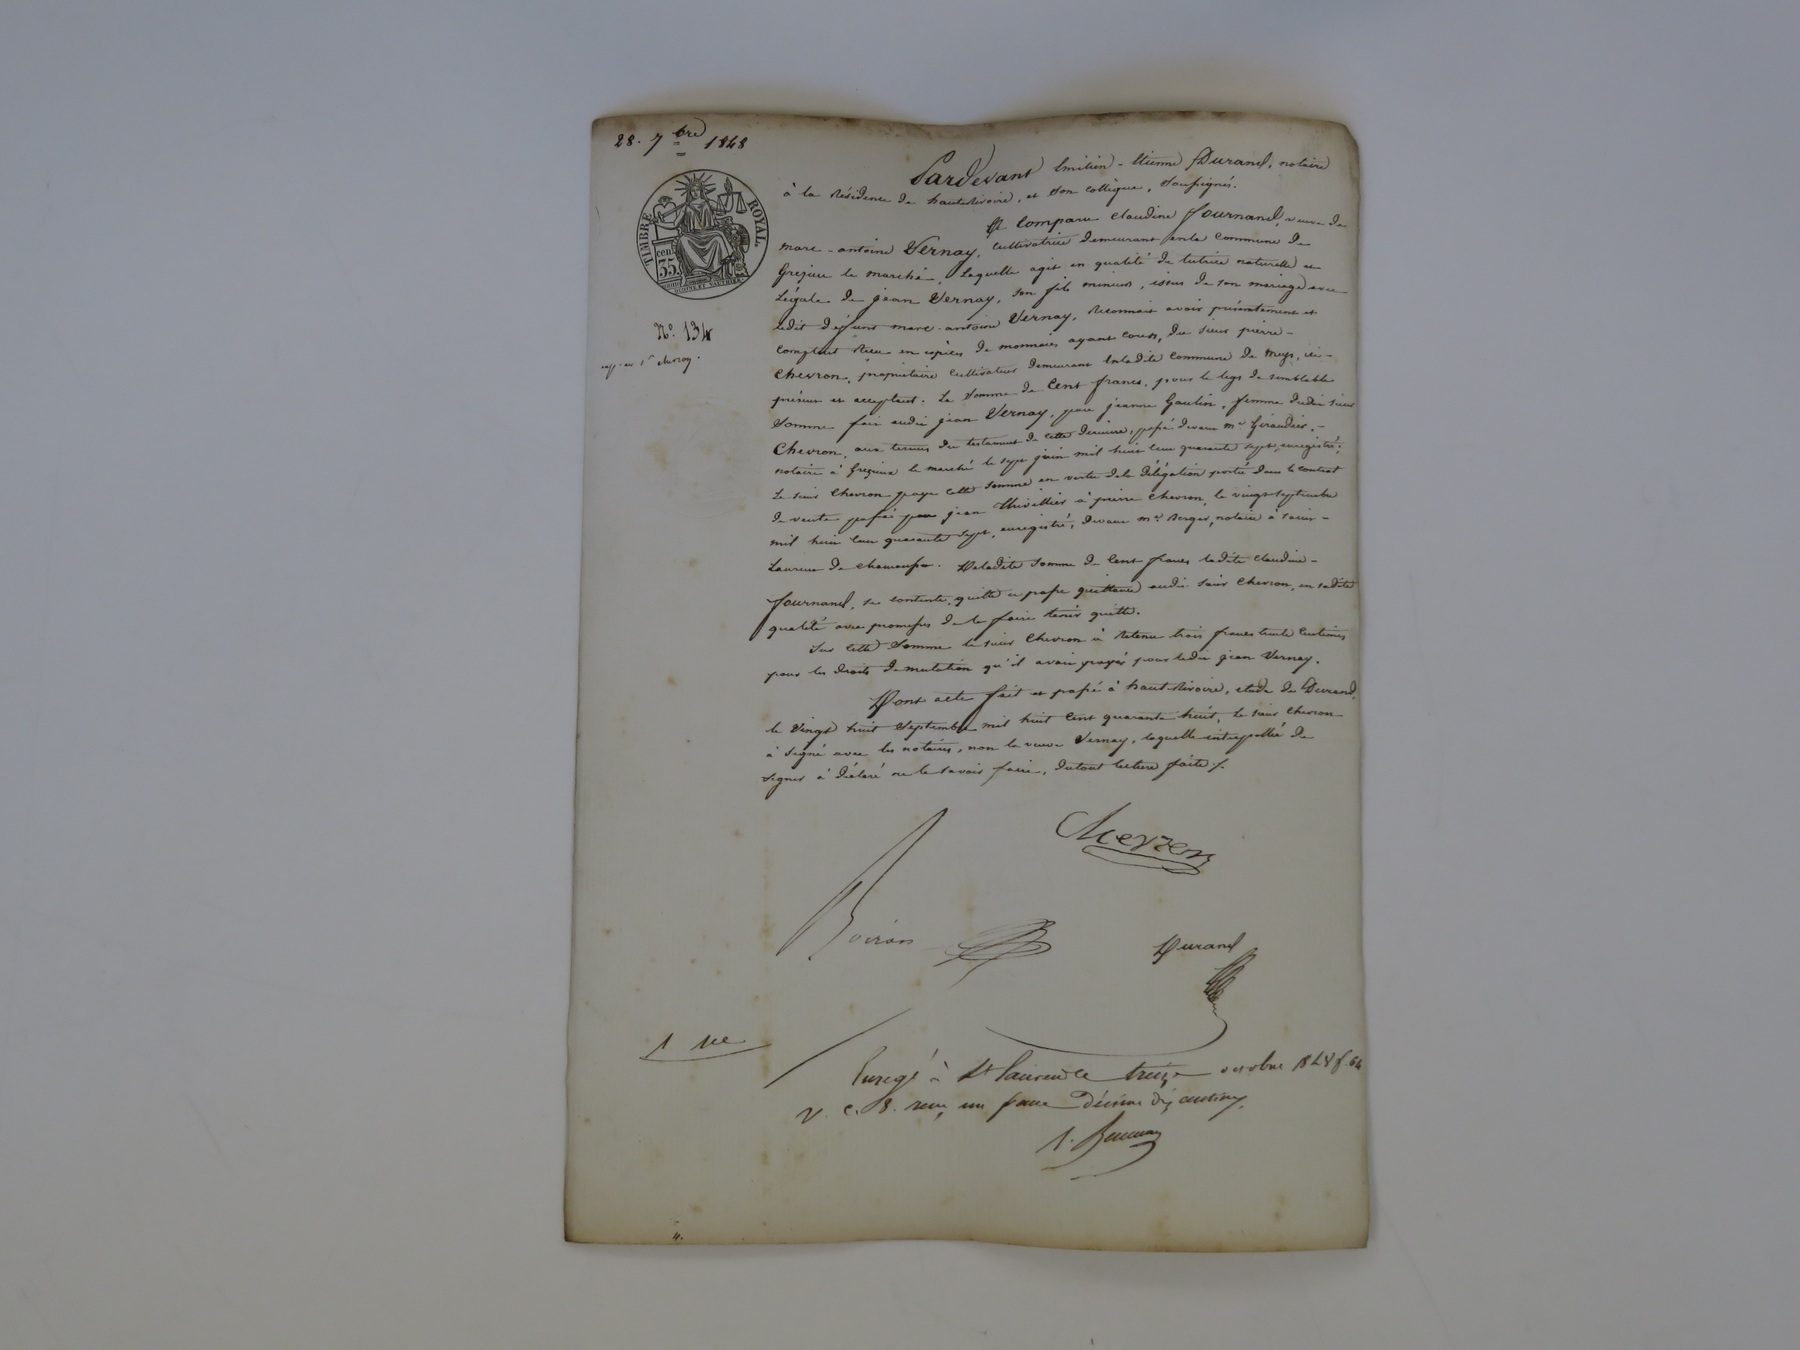 28. 7bre 1848
TIMBRE ROYAL.
cen.
35.
N° 134
Pardevant Emilien-Etienne Durand, notaire
à la Résidence de hauteRivoire, et son collègue, soussignés.
Et Comparu Claudine fournand, veuve de
marc-antoine Vernay, Cultivatrice demeurant en la Commune de
Grezieu le marché, Laquelle agit en qualité de tutrice naturelle et
Légale de jean Vernay, son fils mineur, issus de son mariage avec
ledit défunt marc-antoine Vernay, Reconnait avoir présentement et
comptant Reçu en espèces de monnaies ayant cours, du sieur pierre-
Chevron, propriétaire Cultivateur demeurant en ladite Commune de meys, ici-
présent et acceptant: La Somme de Cent francs, pour le legs de semblable
Somme fait audit jean Vernay, par jeanne Goutin, femme dudit sieur
Chevron, aux termes du testament de cette dernière, passé devant me Giraudier,-
notaire à Grezieu le marché le sept juin mil huit cent quarante sept, enregistré;
Le sieur Chevron paye cette somme en vertu de la délégation portée dans le contrat
de vente passé par jean Thivillier à pierre Chevron, le vingt septembre
mil huit cent quarante sept, enregistré, devant me Berger, notaire à saint-
Laurent de chamousset. De ladite somme de Cent francs ladite Claudine-
fournand, se contente, quitte et passe quittance audit sieur Chevron, en sadite
qualité avec promesses de le faire tenir quitte.
Sur cette Somme le sieur Chevron à Retenu trois francs trente Centimes
pour les droits de mutation qu'il avait payés pour ledit jean Vernay.
Dont acte fait et passé à hauteRivoire, étude de Durand,
le vingt huit Septembre mil huit cent quarante huit, le sieur Chevron
à signé avec les notaires, non la veuve Vernay, laquelle interpellée de
signer à déclaré ne le savoir faire, dutout lecture faite ./.
Chevron
Boiron
Durand
Enregé à St Laurent le treize octobre 1848 f. 64
v. c. 8. reçu un franc décime dix centimes